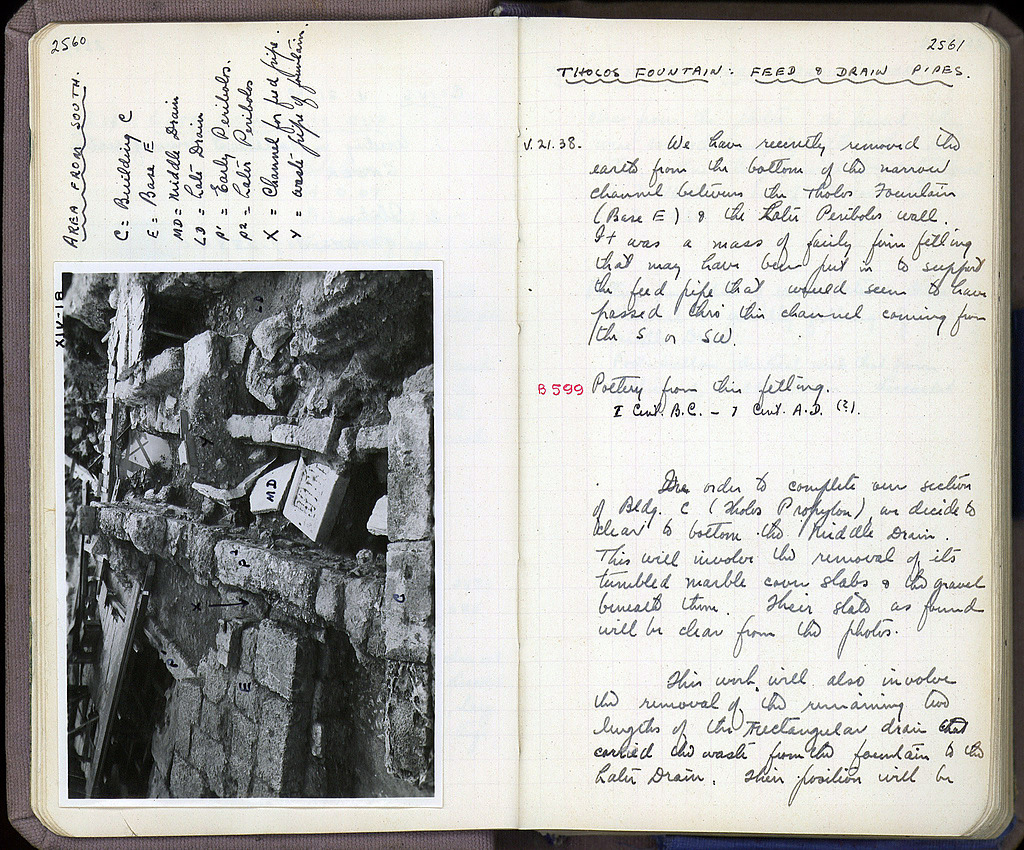 2560
AREA FROM SOUTH.
C = Building C
E = Base E
MD = Middle Drain
LD = Late Drain
P' = Early Peribolos.
P2 = Later Peribolos
X = Channel for feed pipe.
Y = waste pipe of fountain.
XIV-18
LD
Y
MD
P2
X
P'
E
C
2561
THOLOS FOUNTAIN: FEED & DRAIN PIPES.
V.21.38. We have recently removed the
earth from the bottom of the narrow
channel between the Tholos Fountain
(Base E) & the Later Peribolos wall.
It was a mass of fairly firm filling
that may have been put in to support
the feed pipe that would seem to have
passed thro' this channel coming from
the S or SW.
B 599 Pottery from this filling.
I Cent. B.C. – 1 Cent. A.D. (?).
In order to complete our section
of Bldg. C (Tholos Propylon) we decide to
clear to bottom the Middle Drain.
This will involve the removal of its
tumbled marble cover slabs & the gravel
beneath them. Their state as found
will be clear from the photos.
This work will also involve
the removal of the remaining two
lengths of the rectangular drain that
carried the waste from the fountain to the
Later Drain. Their position will be